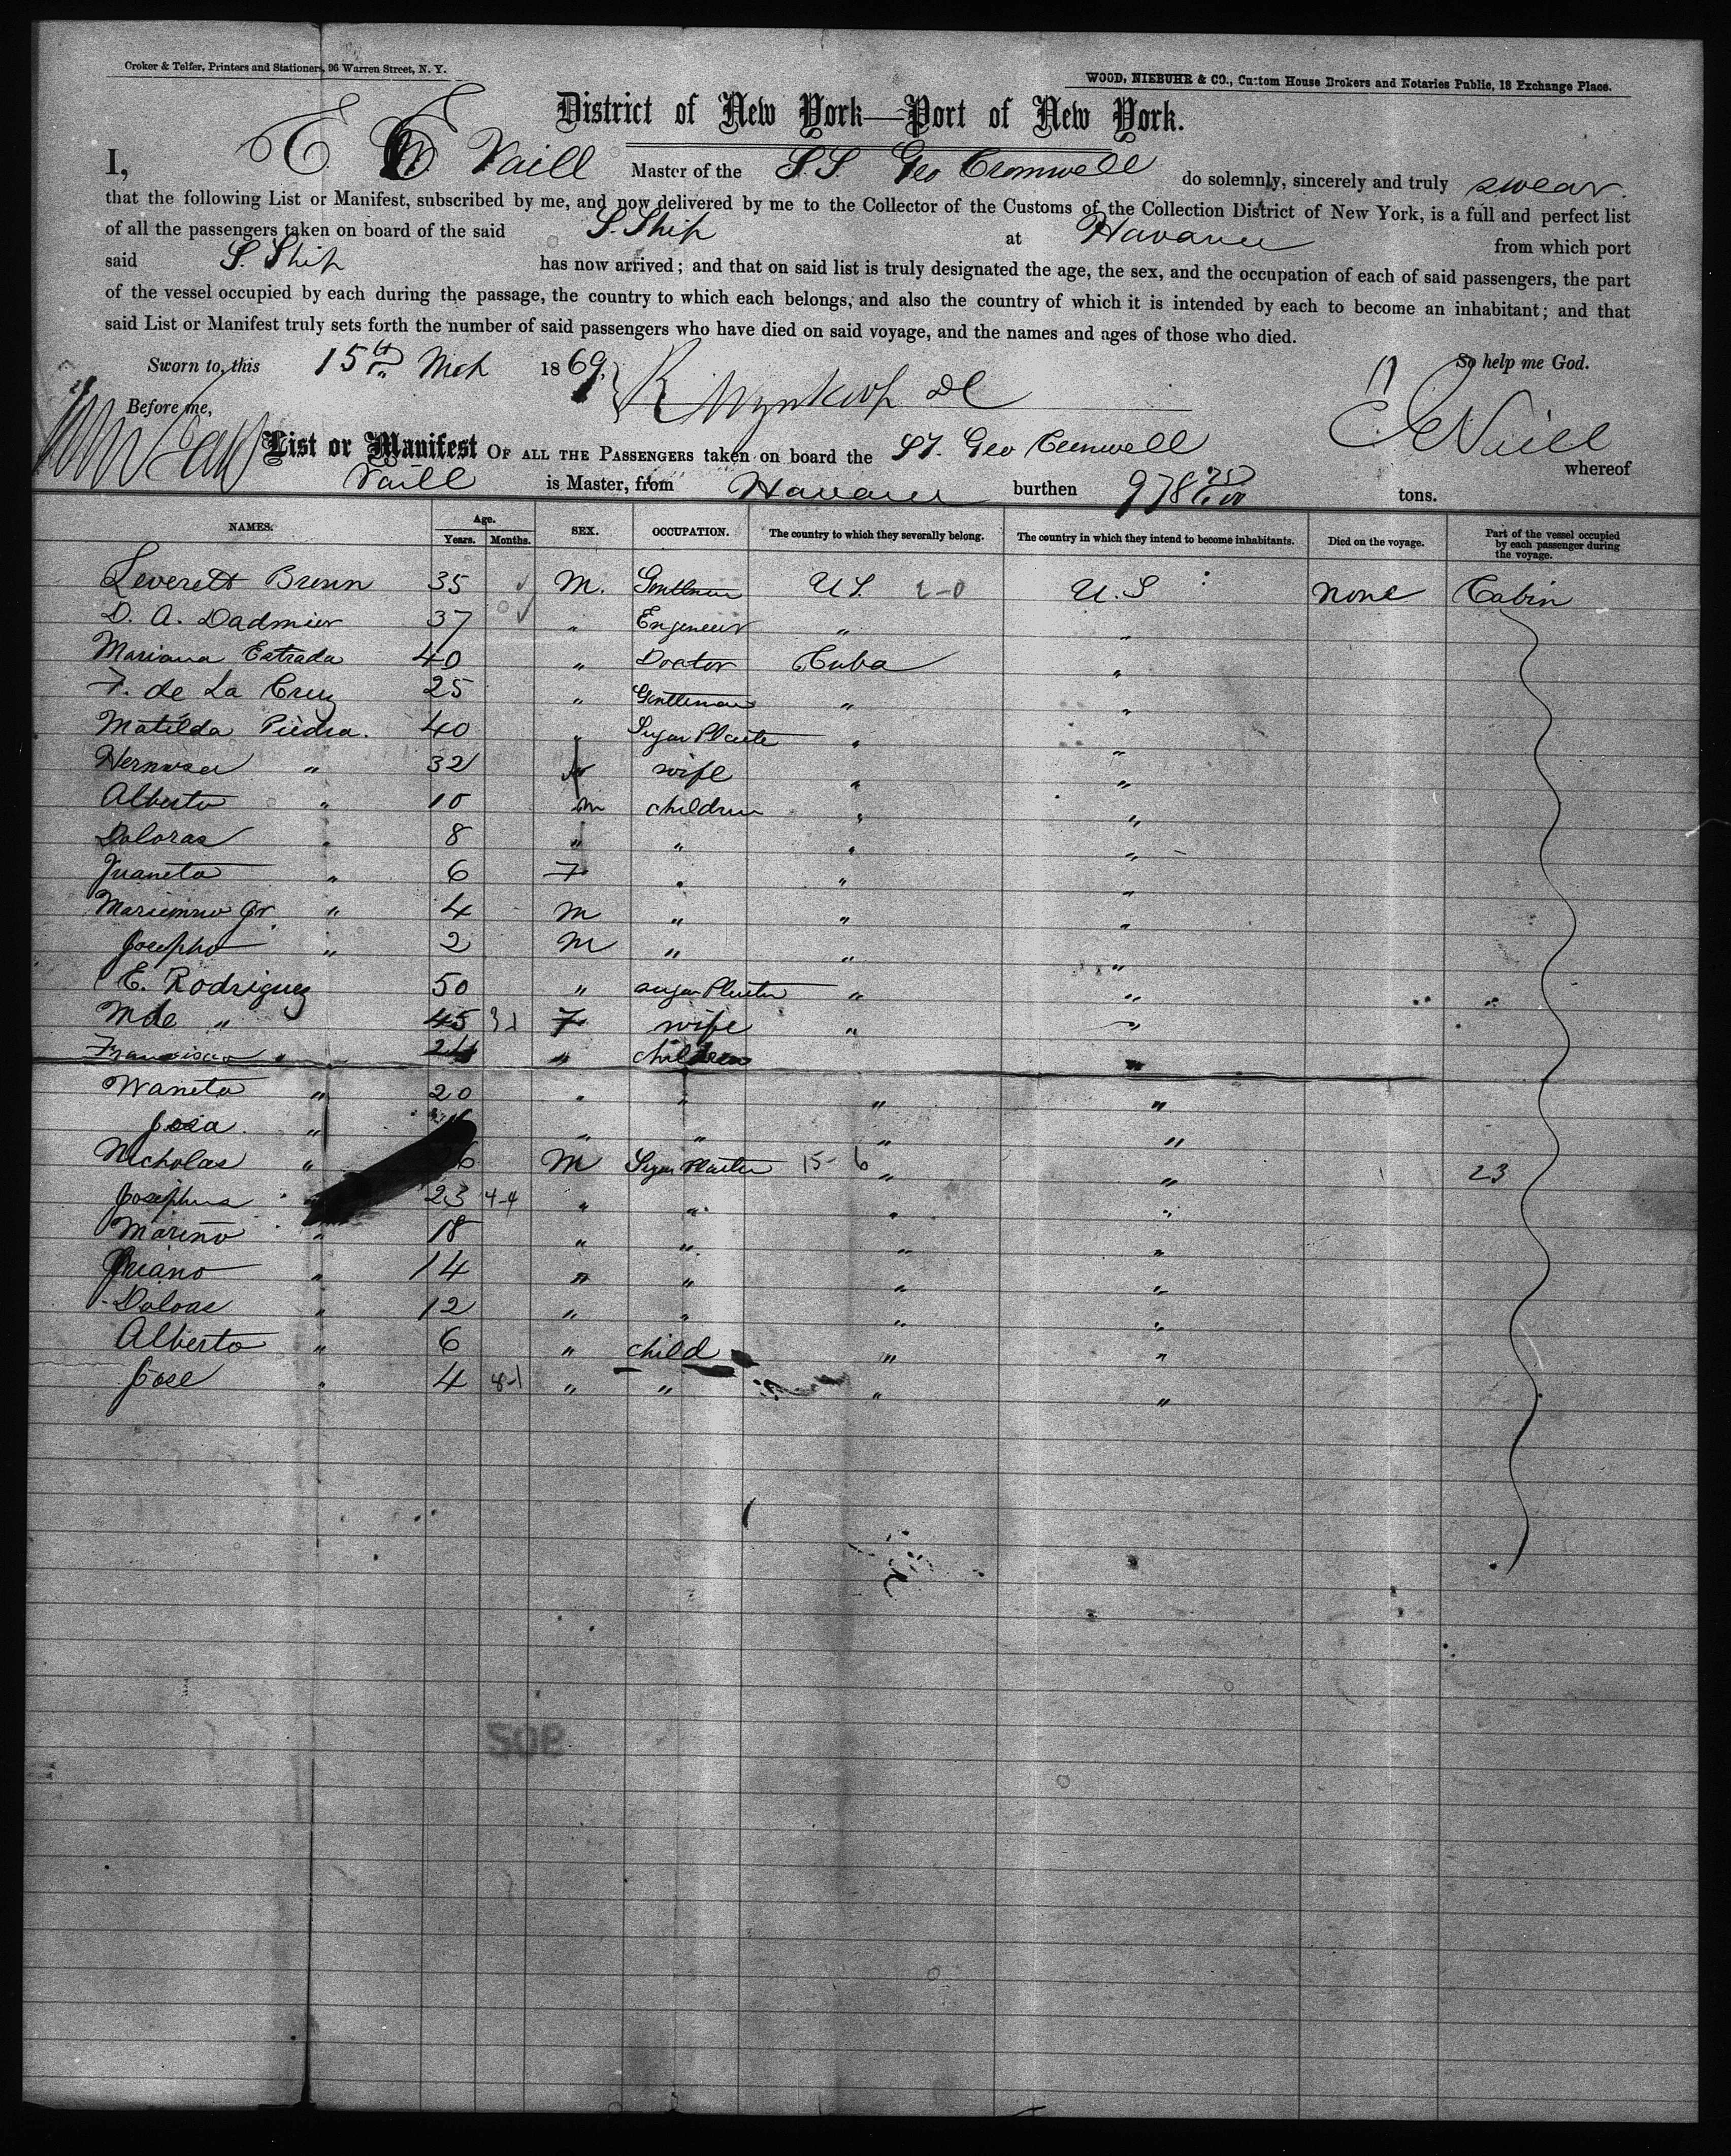 Croker & Telfer, Printers and Stationers, 96 Warren Street, N. Y.
WOOD, NIEBUHR & CO., Custom House Brokers and Notaries Public, 18 Exchange Place.
District of New York—Port of New York.
I, E Vaill Master of the S.S Geo Cromwell do solemnly, sincerely and truly swear.
that the following List or Manifest, subscribed by me, and now delivered by me to the Collector of the Customs of the Collection District of New York, is a full and perfect list
of all the passengers taken on board of the said S. Ship at Havana from which port
said S. Ship has now arrived; and that on said list is truly designated the age, the sex, and the occupation of each of said passengers, the part
of the vessel occupied by each during the passage, the country to which each belongs, and also the country of which it is intended by each to become an inhabitant; and that
said List or Manifest truly sets forth the number of said passengers who have died on said voyage, and the names and ages of those who died.
Sworn to, this 15th Mch 1869. So help me God.
Before me,
List or Manifest OF ALL THE PASSENGERS taken on board the Geo Cromwell whereof
Vaill is Master, from Havana burthen 978 tons.
NAMES. Age. Years. Months. SEX. OCCUPATION. The country to which they severally belong. The country in which they intend to become inhabitants. Died on the voyage. Part of the vessel occupied by each passenger during the voyage.
Leverett 35 M. Gentleman U S. 2-0 U. S none Cabin
D. A. 37 " Engeneer " "
Mariana Estrada 40 " Doctor Cuba "
F. de La Cruz 25 " Gentleman " "
Matilda Piedra. 40 " " "
" 32 wife " "
Alberto " 10 m children " "
Doloras " 8 " " " "
Juaneta " 6 F " " "
Jr. " 4 M " " "
Josepho " 2 M " " "
E. Rodriguez 50 " " "
Mde " 45 F wife " "
Francisca " " children "
Waneta " 20 " " " "
Josa " " " " "
Nicholas " M 15-6 " " 23
" 23 4-4 " " " "
Marino " 18 " " " "
" 14 " " " "
Doloas " 12 " " " "
Alberto " 6 " child " "
Jose " 4 8-1 " " " "